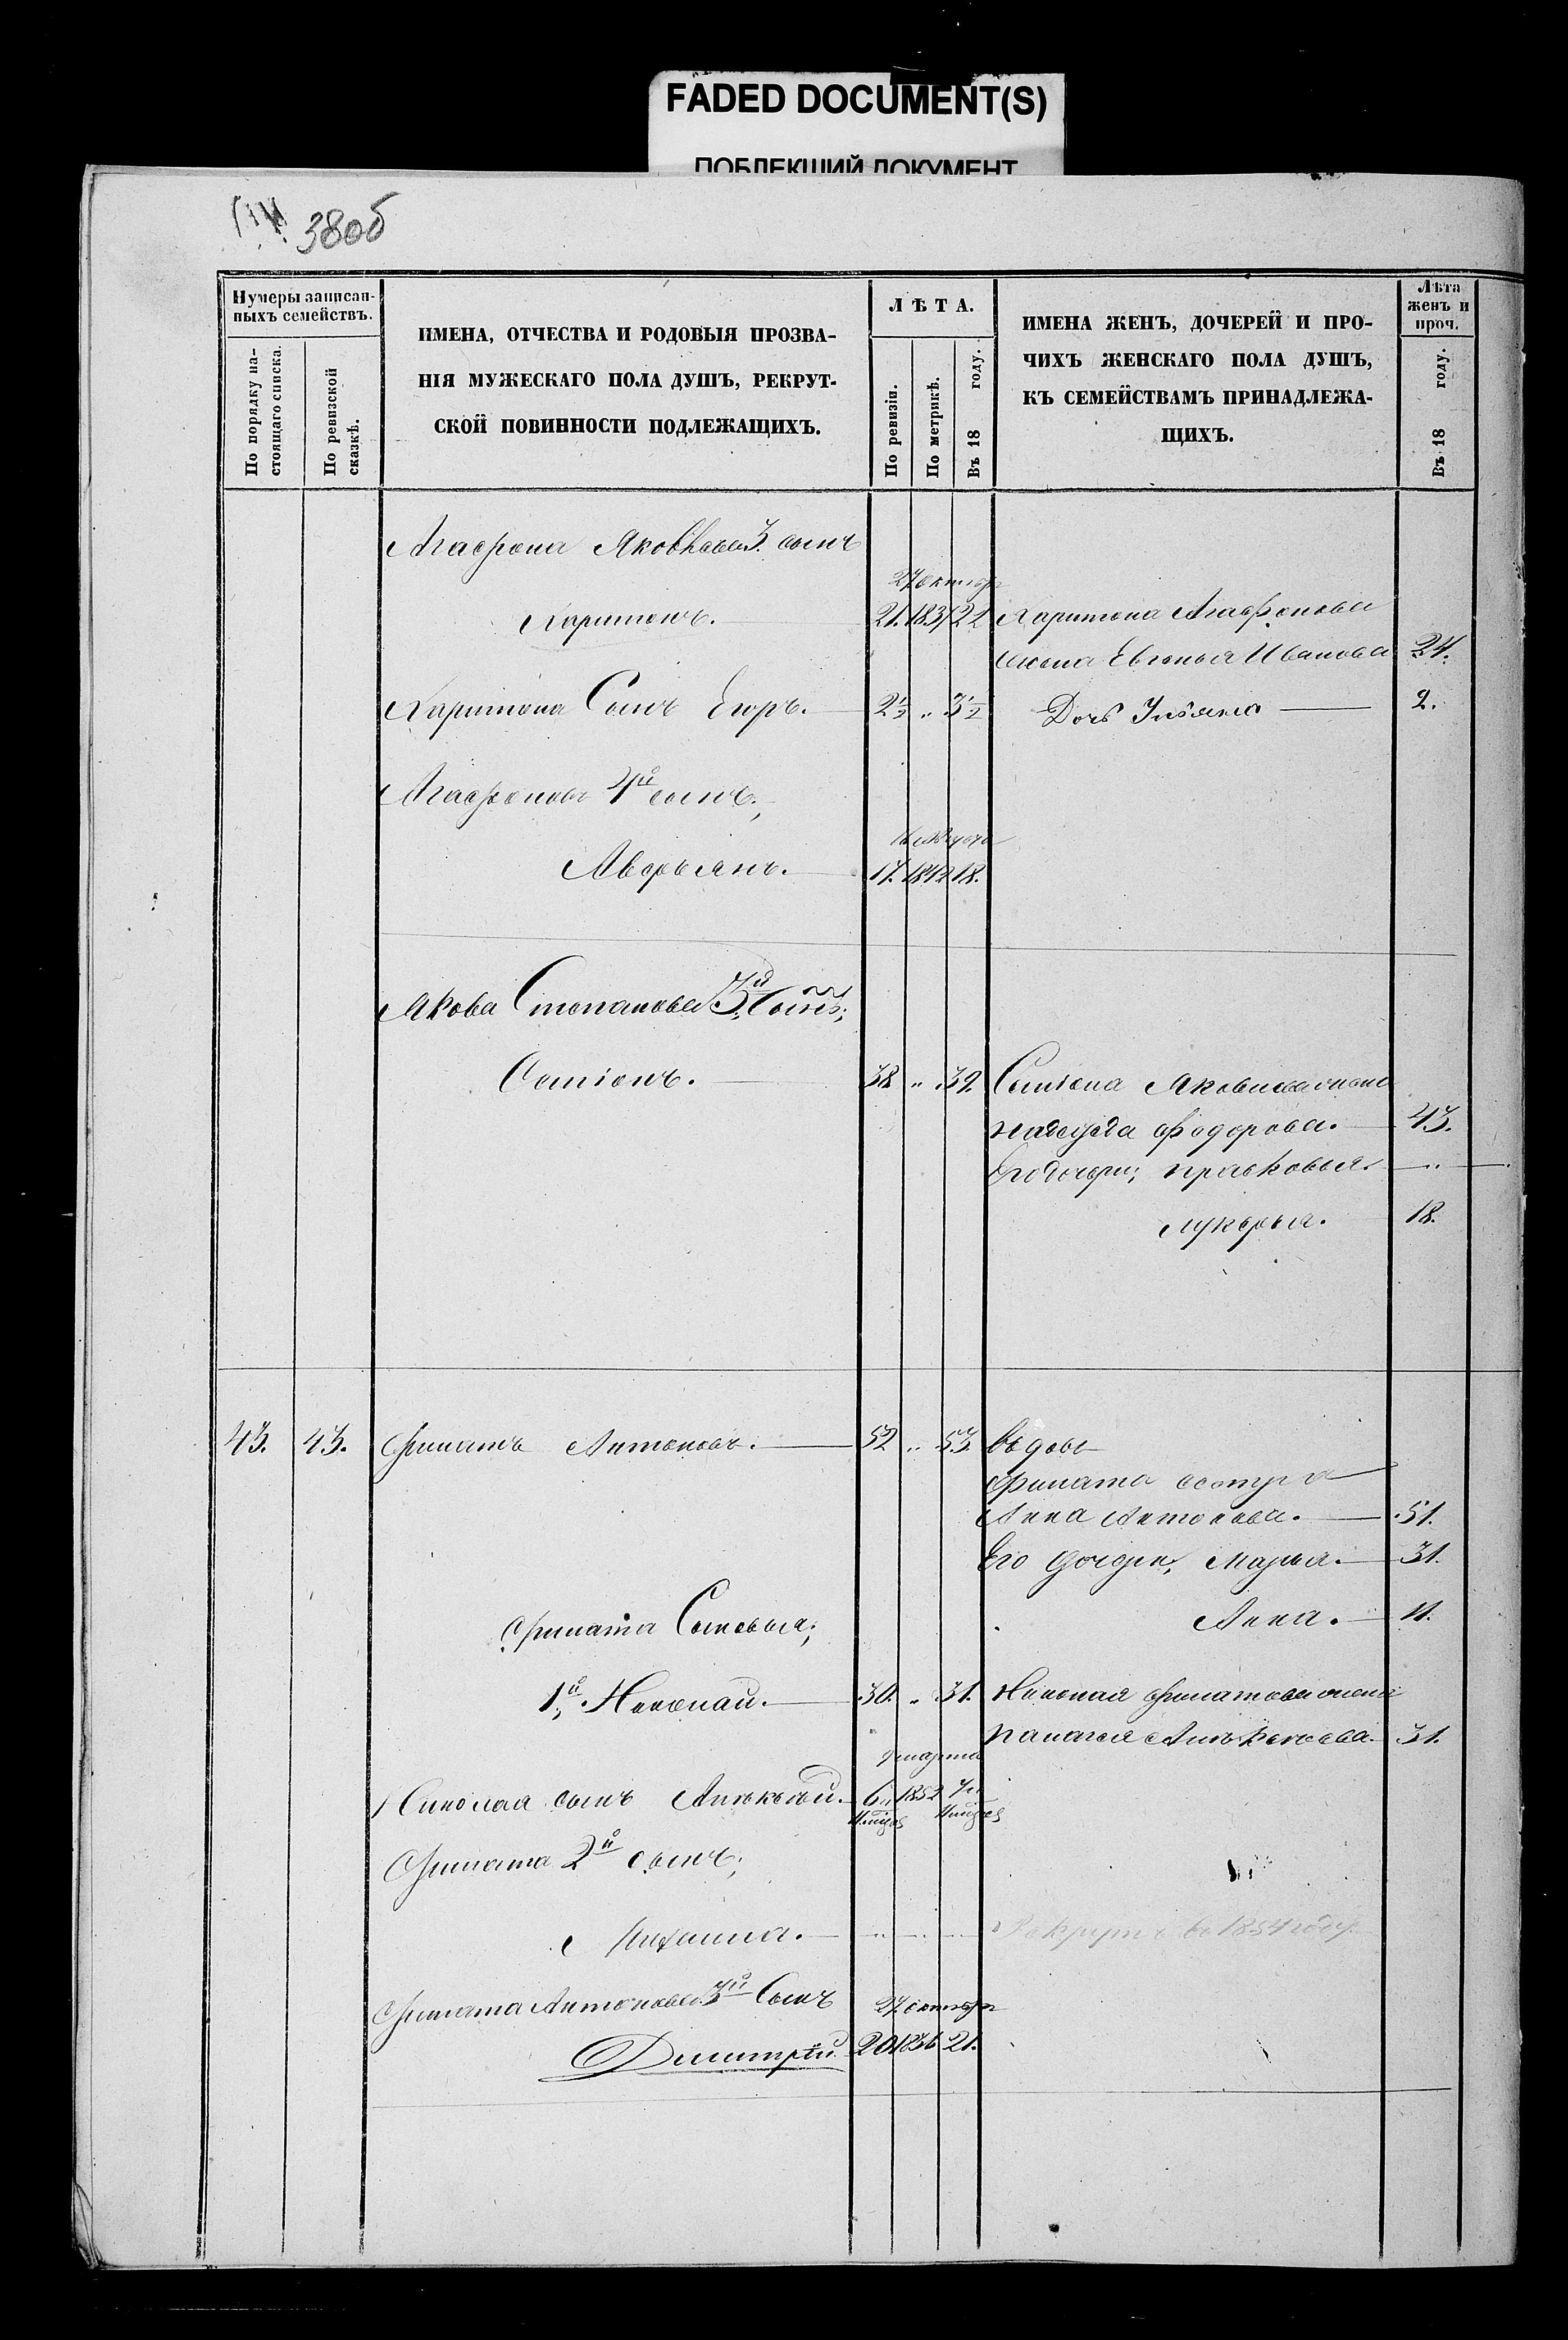 FADED DOCUMENT(S)
ПОБЛЕКШИЙ ДОКУМЕНТ
380б
Нумеры записан-
ныхъ семействъ.
По порядку на-
стоящаго списка.
По ревизской
сказкѣ.
ИМЕНА, ОТЧЕСТВА И РОДОВЫЯ ПРОЗВА-
НІЯ МУЖЕСКАГО ПОЛА ДУШЪ, РЕКРУТ-
СКОЙ ПОВИННОСТИ ПОДЛЕЖАЩИХЪ.
ЛѢТА.
По ревизіи.
По метрикѣ.
Въ 18 году.
ИМЕНА ЖЕНЪ, ДОЧЕРЕЙ И ПРО-
ЧИХЪ ЖЕНСКАГО ПОЛА ДУШЪ,
КЪ СЕМЕЙСТВАМЪ ПРИНАДЛЕЖА-
ЩИХЪ.
Лѣта
женъ и
проч.
Въ 18 году.
Агафона Яковлева 3. сынъ
27 октябр
Харитонъ. 21. 22 Харитона Агафонова
жена Евгенья Иванова 24.
Харитона Сынъ Егоръ. 2½ „ 3½ Дочь Ульяна 2.
Агафоновъ 4й сынъ;
Аверьянъ. 17. 1842 18.
Якова Степанова 3й Сынъ;
Семіонъ. 38 „ 39. Семіона Яковлева жена
Федорова. 43.
Его дочери; Прасковья. „
Лукерья. 18.
43. 43. Филатъ Антоновъ. 52 „ 53. вдовъ
Филата сестра
Анна Антонова. 51.
Его дочери, Марья. 31.
Филата Сыновья; Анна. 11.
1й. Николай. 30. „ 31. Николая Филатова жена
Пелагея 31.
марта
Николая сынъ Алексей. 6 1852
Филата 2й сынъ;
Михаила. „ „ „ Рекрутъ въ 1854 году.
Филата Антонова 3й Сынъ 27 октябр
Дмитрій. 20 1836 21.